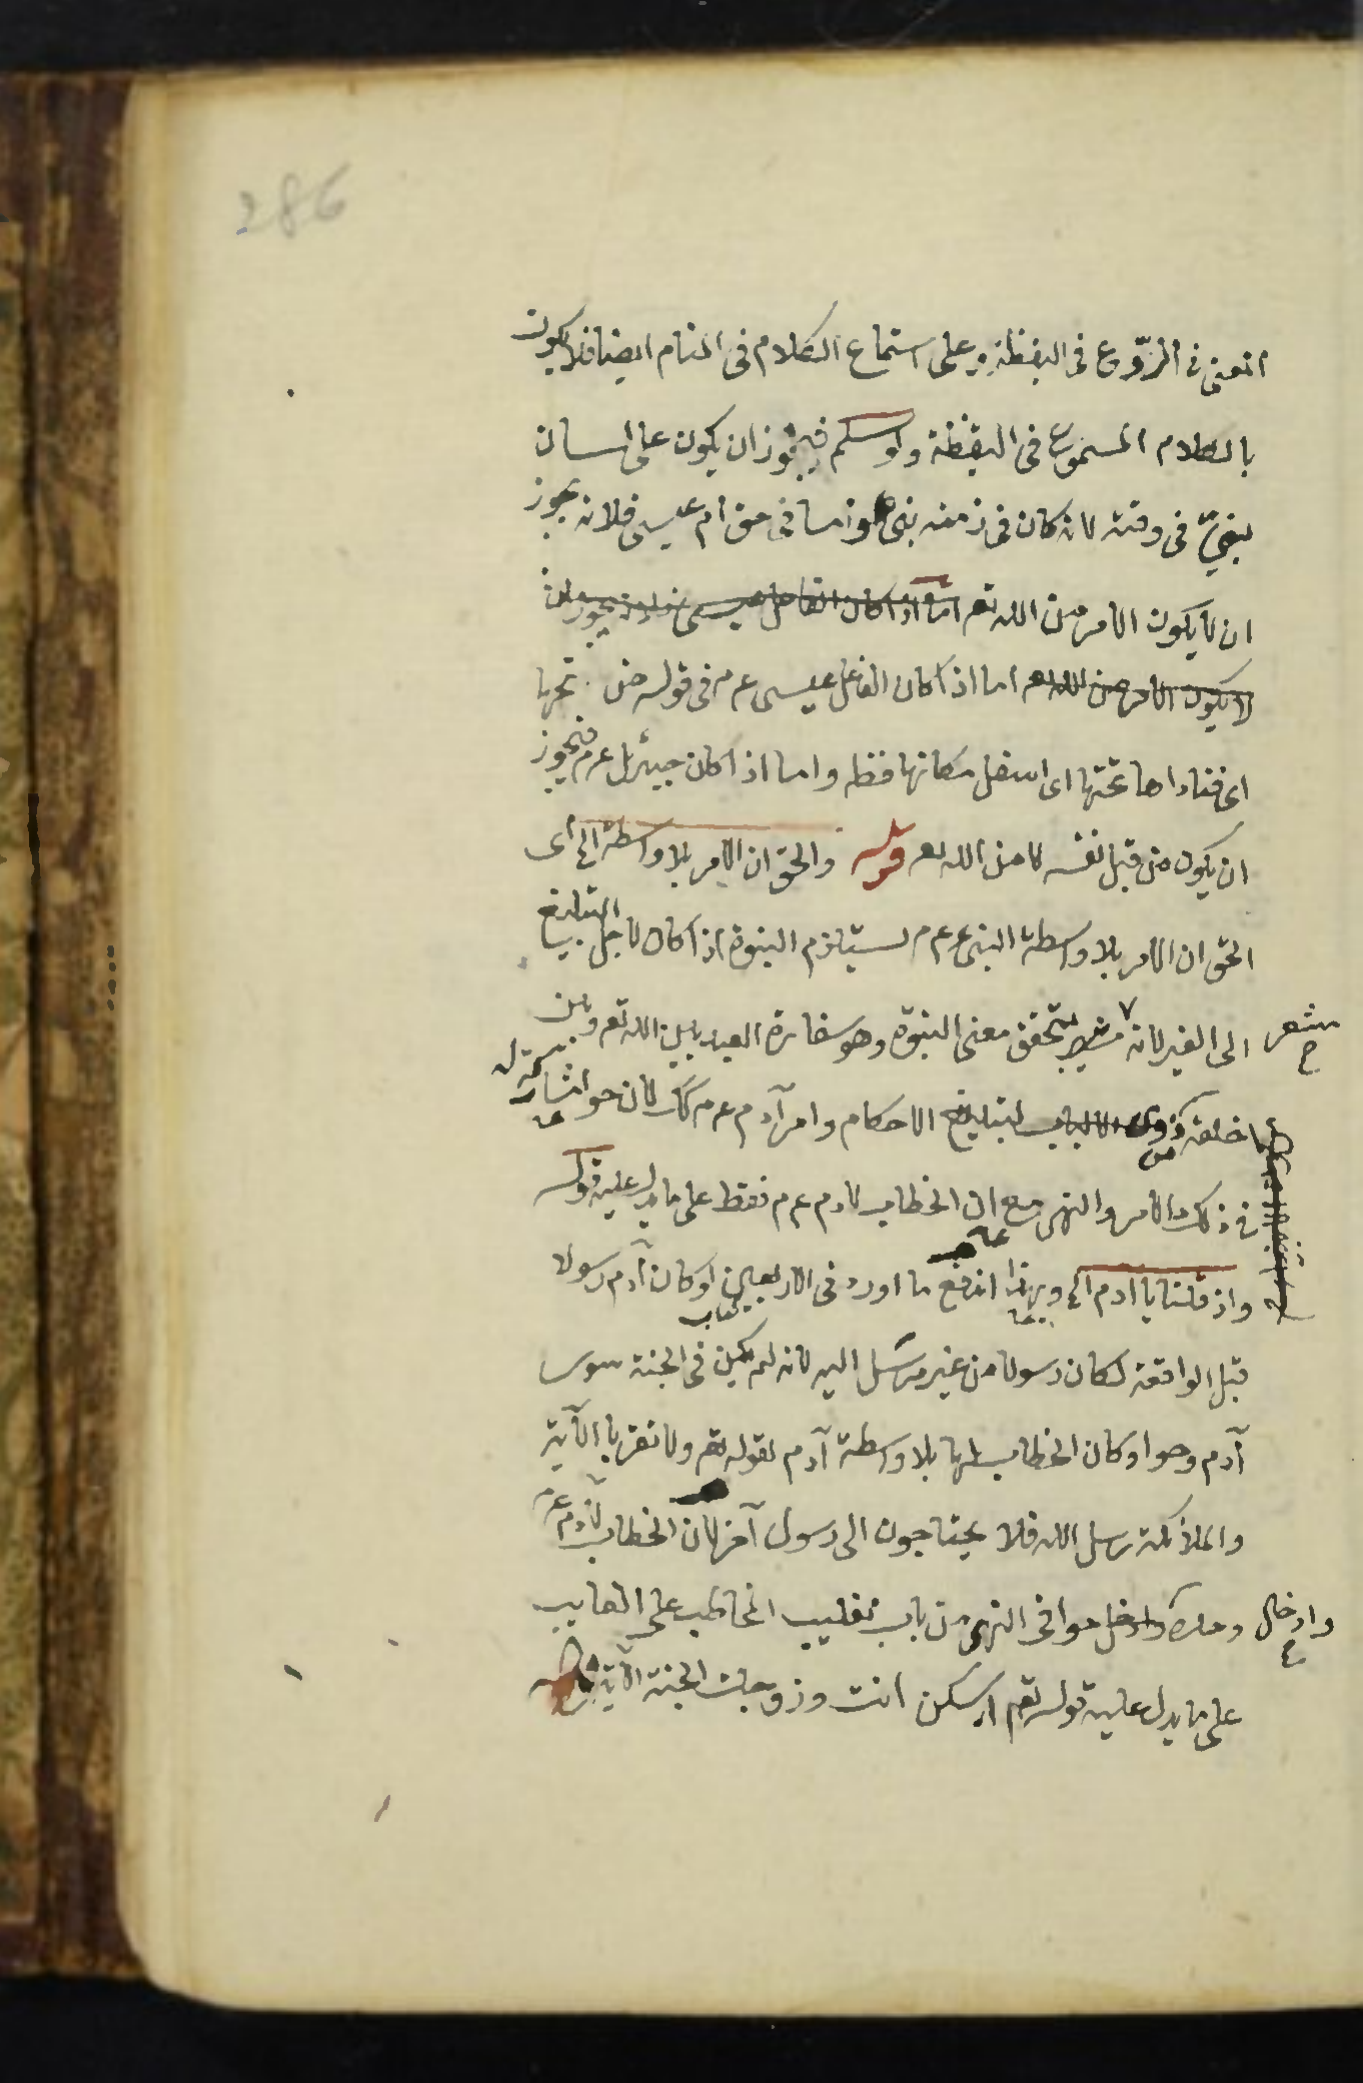 286
المعنى في الروّع في اليقظة وعلى استماع الكلام في المنام ايضا فلا يكون
بالكلام المسموع في اليقظة ولو سلم فيجوز ان يكون على لسان
نبيّ في وقته لانه كان في زمنه نبي واما في حق ام عيسى فلانه يجوز
ان لا يكون الامر من الله تعم اما اذا كان الفاعل عيسى
لا يكون الامر من الله تعم اما اذا كان الفاعل عيسى عم في قوله من تحتها
اى فناداها تحتها اى اسفل مكانها فظ واما اذا كان جبرئيل عم فيجوز
ان يكون من قبل نفسه لا من الله تعم قوله والحق ان الامر بلا واسطة الخ اى
الحق ان الامر بلا واسطة النبي عم يستلزم النبوة اذا كان لاجل التبليغ
الى الغير لانه مشعر بتحقق معنى النبوة وهو سفارة العبد بين الله تعم وبين
خلقه من ذوى الالباب لتبليغ الاحكام وامر آدم عم كك لان حوا مشاركة له
في ذلك الامر والنهى مع ان الخطاب لادم عم فقط على ما يدل عليه قوله
واذ قلنا يا ادم الخ وبهذا اندفع ما اورد في كتاب الاربعين لو كان آدم رسولا
قبل الواقعة لكان رسولا من غير مرسل اليه لانه لم يكن في الجنة سوى
آدم وحوا وكان الخطاب لهما بلا واسطة آدم لقوله تعم ولا تقربا الآية
والملائكة رسل الله فلا يحتاجون الى رسول آخر لان الخطاب لآدم عم
وحده وادخال حوا في النهى من باب تغليب المخاطب على الغايب
على ما يدل عليه قوله تعم اسكن انت وزوجك الجنة الآية
مشعر
وادخال